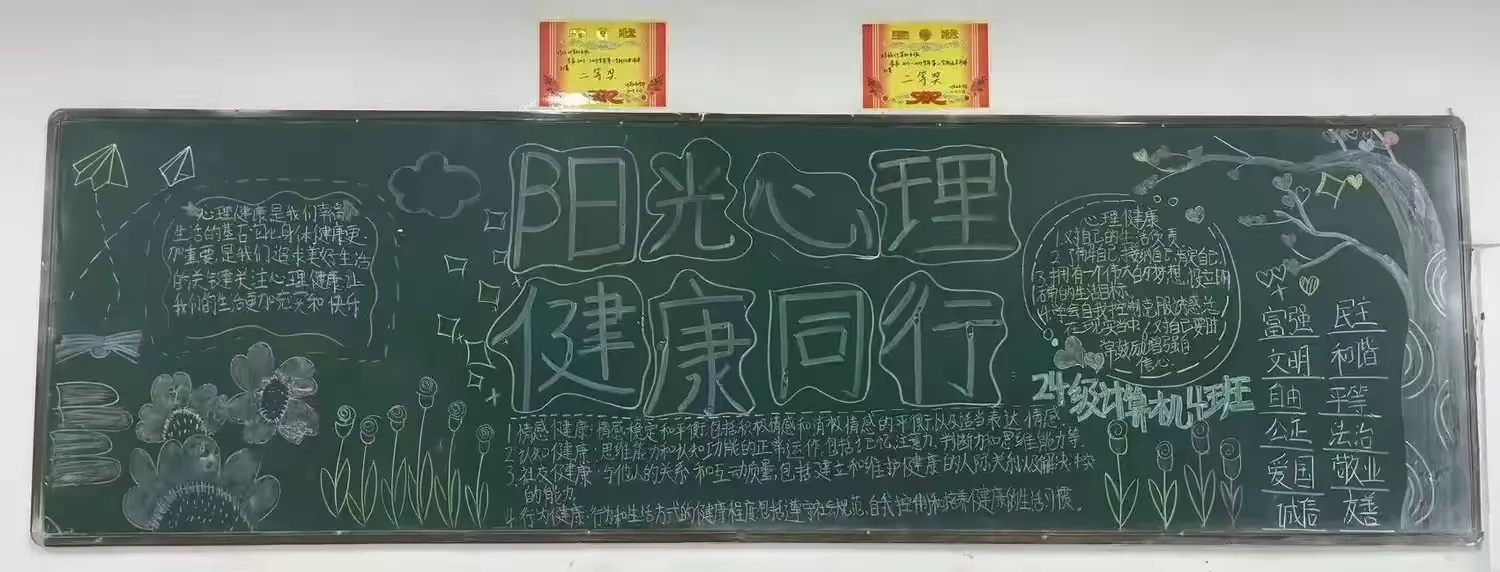 二等奖
二等奖
阳光心理
健康同行
心理健康是我们幸福
生活的基石它比身体健康更
加重要,是我们追求美好生活
的关键关注心理健康让
我们的生活更加充实和快乐
1.情感健康:情感稳定和平衡包括积极情感和消极情感的平衡以及适当表达情感.
2.认知健康:思维能力和认知功能的正常运作.包括记忆.注意力.判断力和思维能力等.
3.社交健康:与他人的关系和互动质量,包括建立和维护健康的人际关系以及解决冲突
的能力
4.行为健康:行为和生活方式的健康程度包括遵守社会规范,自我控制和培养健康的生活习惯.
心理健康
1.对自己的生活负责
2.了解自己,接纳自己,肯定自己.
3.拥有一个伟大的梦想,设立
目标
4.学会自我控制克服诱惑
在现实当中,对自己要
常鼓励增强自
信心.
24级计算机4班
富强 民主
文明 和谐
自由 平等
公正 法治
爱国 敬业
诚信 友善